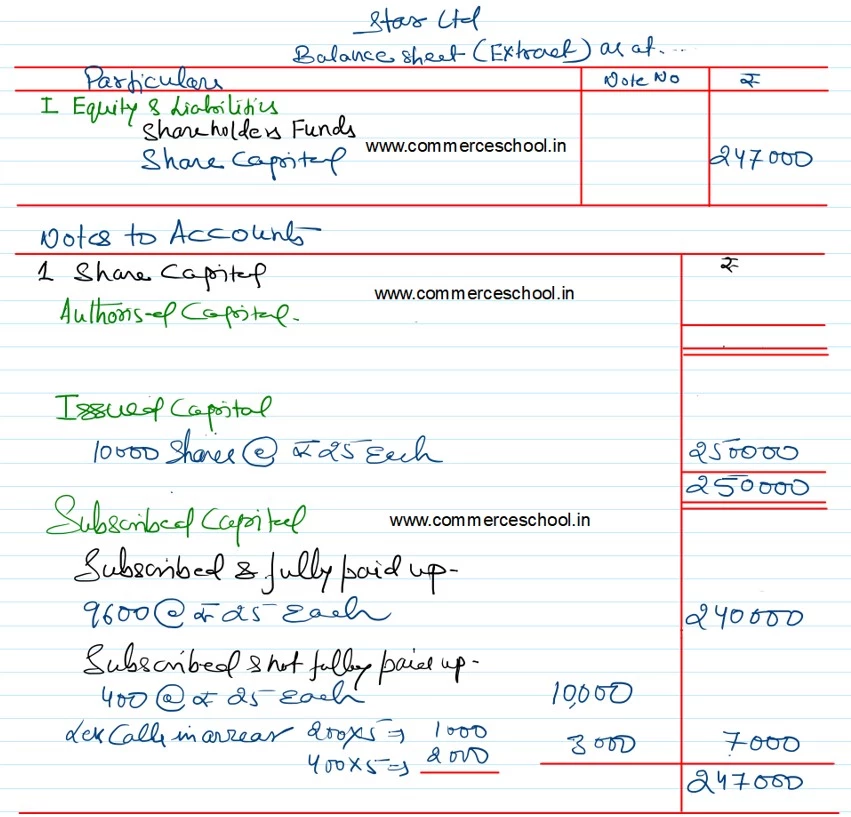 Star Ltd
Balance sheet (Extract) as at....
Particulars Note No ₹
I Equity & Liabilities
Shareholders Funds
Share Capital www.commerceschool.in 247000
Notes to Accounts
1 Share Capital ₹
www.commerceschool.in
Authorised Capital.
Issued Capital
10000 Shares @ ₹ 25 Each 250000
250000
Subscribed Capital www.commerceschool.in
Subscribed & fully paid up-
9600 @ ₹ 25 Each 240000
Subscribed & not fully paid up-
400 @ ₹ 25 Each 10,000
Less Calls in arrear 200×5 ⇒ 1000 3000 7000
400×5 ⇒ 2000
247000